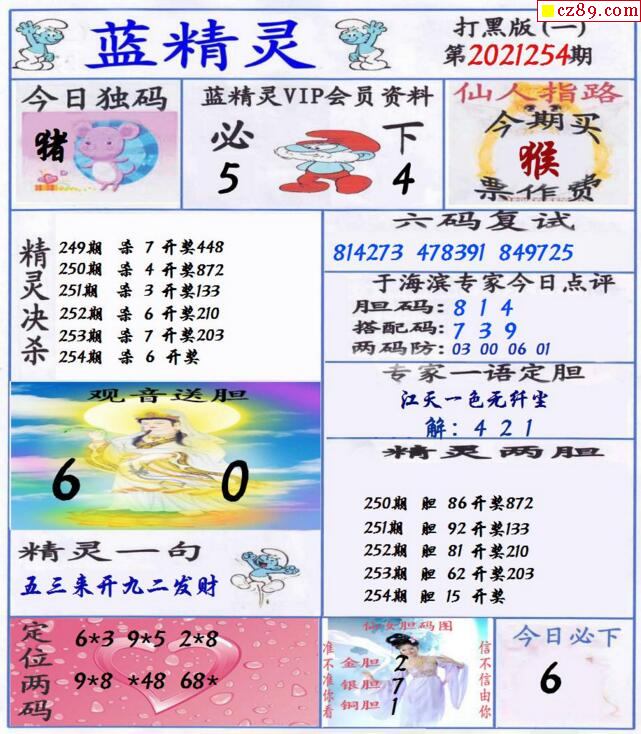 cz89.com
蓝精灵
打黑版(一)
第2021254期
今日独码
猪
蓝精灵VIP会员资料
必 下
5 4
仙人指路
今期买
猴
票作费
精灵决杀
249期 杀 7 开奖448
250期 杀 4 开奖872
251期 杀 3 开奖133
252期 杀 6 开奖210
253期 杀 7 开奖203
254期 杀 6 开奖
六码复试
814273 478391 849725
于海滨专家今日点评
胆码: 8 1 4
搭配码: 7 3 9
两码防: 03 00 06 01
专家一语定胆
江天一色无纤尘
解: 4 2 1
观音送胆
6 0
精灵两胆
250期 胆 86 开奖872
251期 胆 92 开奖133
252期 胆 81 开奖210
253期 胆 62 开奖203
254期 胆 15 开奖
精灵一句
五三来开九二发财
定位两码
6*3 9*5 2*8
9*8 *48 68*
仙女胆码图
准不准你看
金胆 2
银胆 7
铜胆 1
信不信由你
今日必下
6